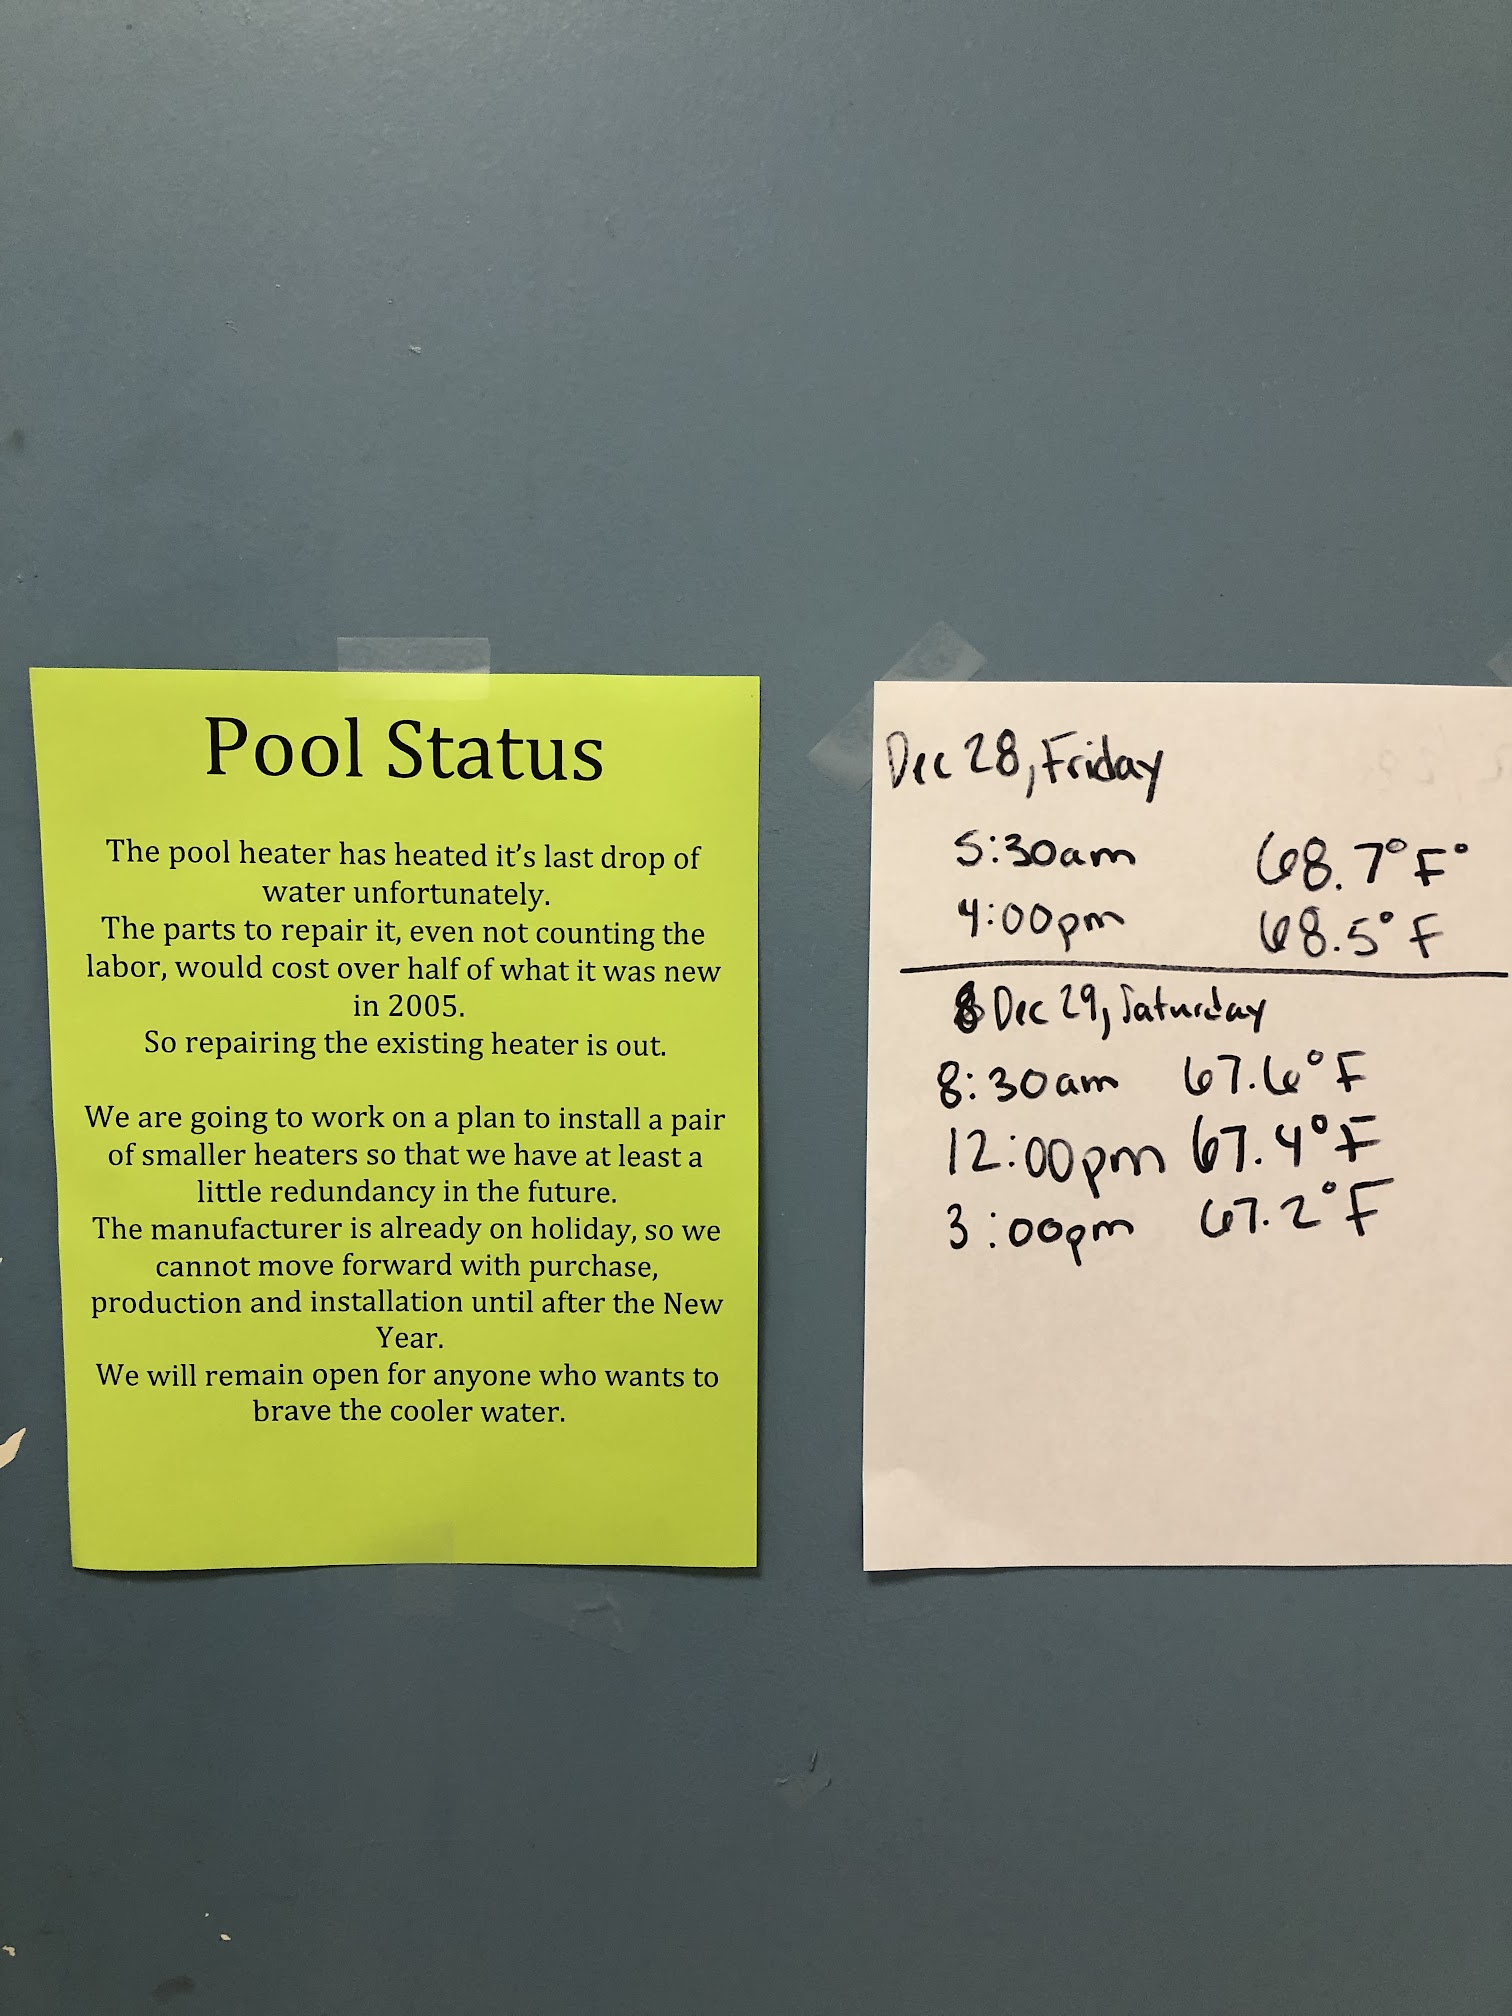 Pool Status
The pool heater has heated it's last drop of
water unfortunately.
The parts to repair it, even not counting the
labor, would cost over half of what it was new
in 2005.
So repairing the existing heater is out.
We are going to work on a plan to install a pair
of smaller heaters so that we have at least a
little redundancy in the future.
The manufacturer is already on holiday, so we
cannot move forward with purchase,
production and installation until after the New
Year.
We will remain open for anyone who wants to
brave the cooler water.
Dec 28, Friday
5:30am 68.7°F°
4:00pm 68.5°F
Dec 29, Saturday
8:30am 67.6°F
12:00pm 67.4°F
3:00pm 67.2°F